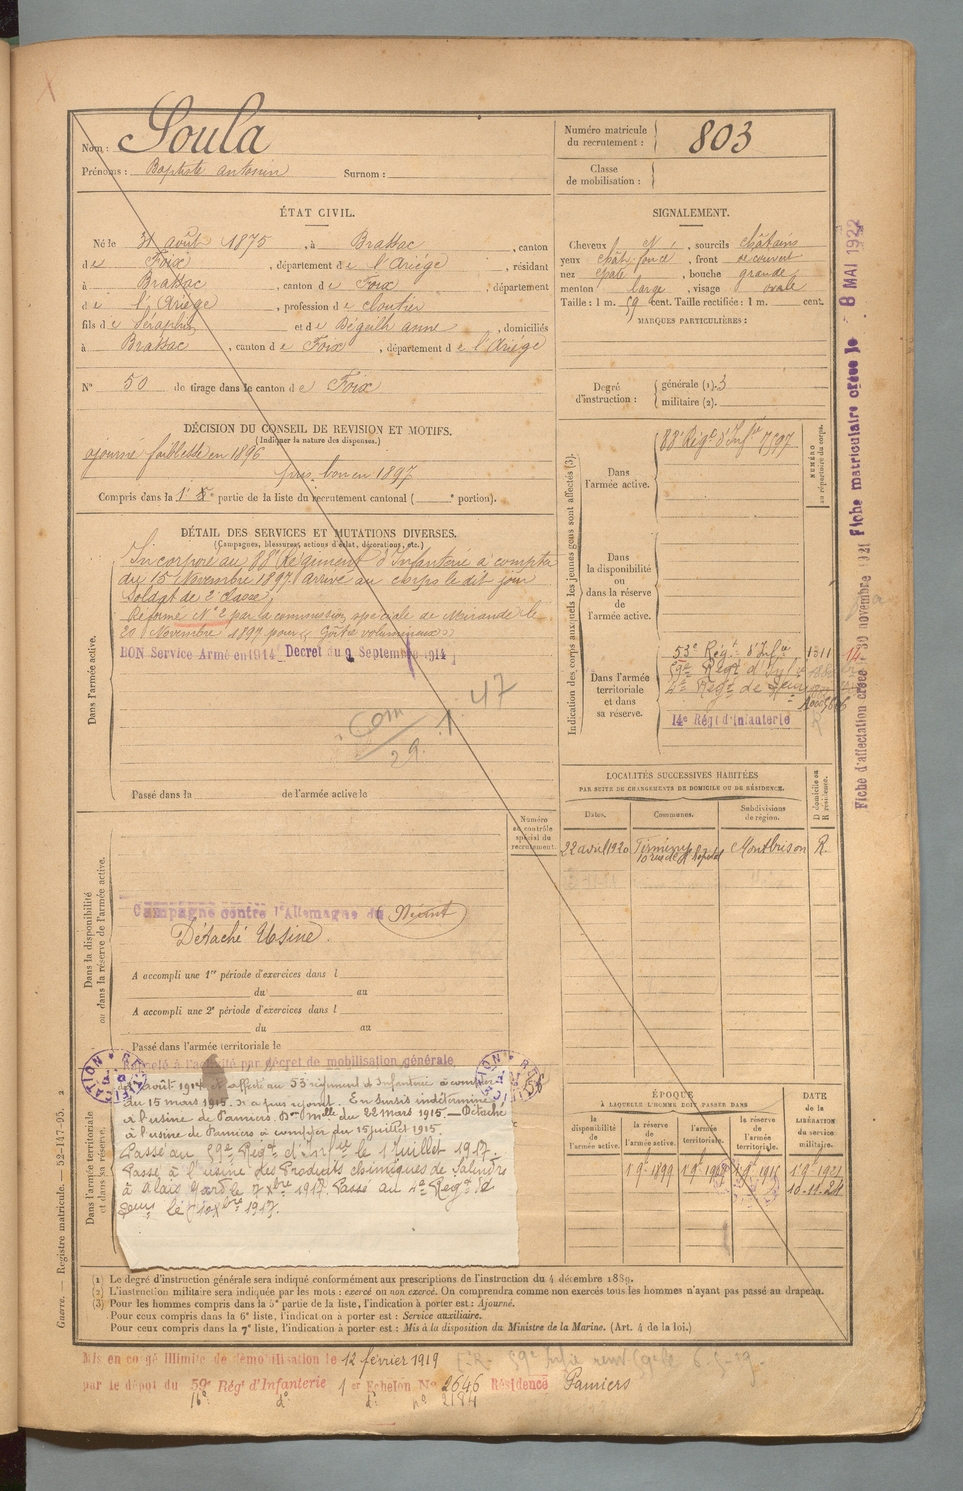 Nom : Soula
Prénoms : Baptiste Antonin Surnom :
Numéro matricule
du recrutement : 803
Classe
de mobilisation :
ÉTAT CIVIL.
Né le 31 août 1875, à Brassac, canton
de Foix, département de l'Ariège, résidant
à Brassac, canton de Foix, département
de l'Ariège, profession de cloutier
fils de Séraphin et de Béguilh anne, domiciliés
à Brassac, canton de Foix, département de l'Ariège
N° 50 de tirage dans le canton de Foix
SIGNALEMENT.
Cheveux , sourcils châtains
yeux , front découvert
nez épaté, bouche grande
menton large, visage ovale
Taille : 1 m. 59 cent. Taille rectifiée : 1 m. cent.
MARQUES PARTICULIÈRES :
Degré
d'instruction :
générale (1). 3
militaire (2).
DÉCISION DU CONSEIL DE REVISION ET MOTIFS.
(Indiquer la nature des dispenses.)
ajourné faiblesse en 1896
pris bon en 1897
Compris dans la 1e partie de la liste du recrutement cantonal ( e portion).
DÉTAIL DES SERVICES ET MUTATIONS DIVERSES.
(Campagnes, blessures, actions d'éclat, décorations, etc.)
Dans l'armée active.
Incorporé au 88e Régiment d'Infanterie à compter
du 15 Novembre 1897. arrivé au corps le dit jour
Soldat de 2e classe,
Réformé N° 2 par la commission spéciale de Mirande le
20 Novembre 1897 pour « Goître volumineux »
BON Service Armé en 1914 Décret du 9 Septembre 1914
Com 29. 1. 47
Passé dans la de l'armée active le
Indication des corps auxquels les jeunes gens sont affectés (3).
NUMÉRO
au répertoire du corps.
Dans
l'armée active.
88e Régt d'Infie 7597
Dans
la disponibilité
ou
dans la réserve
de l'armée
active.
Dans l'armée
territoriale
et dans
sa réserve.
53e Régt d'Infie 1311
59e Régt d'Infie
4e Régt de
14e Régt d'Infanterie
LOCALITÉS SUCCESSIVES HABITÉES
PAR SUITE DE CHANGEMENTS DE DOMICILE OU DE RÉSIDENCE.
D domicile ou
R résidence.
Dates. Communes. Subdivisions
de région.
22 avril 1920 Firminy Montbrison R.
Numéro
au contrôle
spécial du
recrutement.
Dans la disponibilité
ou dans la réserve de l'armée active.
Campagne contre l'Allemagne du Néant
Détaché Usine.
A accompli une 1re période d'exercices dans l
du au
A accompli une 2e période d'exercices dans l
du au
Passé dans l'armée territoriale le
Dans l'armée territoriale
et dans sa réserve.
Rappelé à l'activité par décret de mobilisation générale
août 1914 et affecté au 53 régiment d'Infanterie à compter
du 15 mars 1915. N'a pas rejoint. En sursis indéterminé
à l'usine de Pamiers. Don mlle du 22 mars 1915. — Détaché
à l'usine de Pamiers à compter du 15 juillet 1915.
Passé au 59e Régt d'Infie le 1 juillet 1917.
Passé à l'usine des Produits chimiques de Salindre
à Alais Gard le 7 Xbre 1917. Passé au 4e Régt de
ÉPOQUE
À LAQUELLE L'HOMME DOIT PASSER DANS
la
disponibilité
de l'armée
active.
la réserve
de
l'armée
active.
l'armée
territoriale.
la réserve
de
l'armée
territoriale.
DATE
de la
LIBÉRATION
du service
militaire.
1 9e 1899
10.11.21
(1) Le degré d'instruction générale sera indiqué conformément aux prescriptions de l'instruction du 4 décembre 1889.
(2) L'instruction militaire sera indiquée par les mots : exercé ou non exercé. On comprendra comme non exercés tous les hommes n'ayant pas passé au drapeau.
(3) Pour les hommes compris dans la 5e partie de la liste, l'indication à porter est : Ajourné.
Pour ceux compris dans la 6e liste, l'indication à porter est : Service auxiliaire.
Pour ceux compris dans la 7e liste, l'indication à porter est : Mis à la disposition du Ministre de la Marine. (Art. 4 de la loi.)
Mis en congé illimité de démobilisation le 12 février 1919
par le dépot du 59e Régt d'Infanterie 1er Echelon No 2646 Résidence Pamiers
do do no 2184
Guerre. — Registre matricule. — 52-147-95.
Fiche d'affectation créée : 30 novembre 1921
Fiche matriculaire créée le 8 MAI 1922